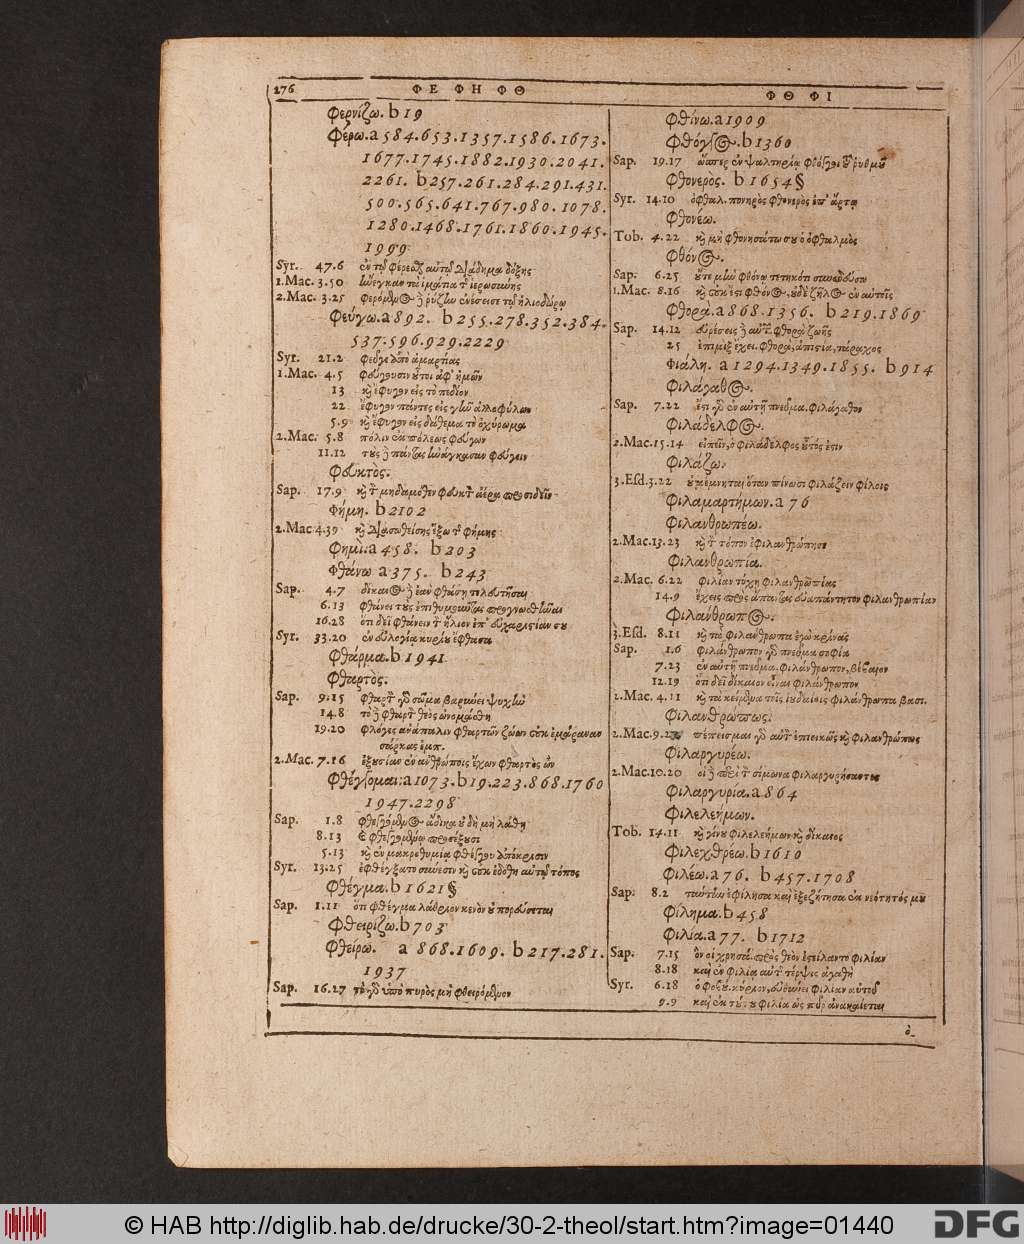 276
ΦΕ ΦΗ ΦΘ
ΦΘ ΦΙ
Φερνίζω. b 19
Φέρω. a 584.653.1357.1586.1673.
1677.1745.1882.1930.2041.
2261. b 257.261.284.291.431.
500.565.641.767.980.1078.
1280.1468.1761.1860.1945.
1999
Syr. 47.6 ἐν τῷ φέρεσθαι αὐτῷ διάδημα δόξης
1.Mac. 3.50 ἤνεγκαν τὰ ἱμάτια τ ἱερωσύνης
2.Mac. 3.25 φερόμενος ῥύδην ἐνέσεισε τῷ ἡλιοδώρῳ
Φεύγω. a 892. b 255.278.352.384.
537.596.929.2229
Syr. 21.2 φεῦγε ἀπὸ ἁμαρτίας
1.Mac. 4.5 φεύγουσιν οὗτοι ἀφ' ἡμῶν
13 καὶ ἔφυγον εἰς τὸ πεδίον
22 ἔφυγον πάντες εἰς γῆν ἀλλοφύλων
5.9 καὶ ἔφυγον εἰς δάθεμα τὸ ὀχύρωμα
2.Mac. 5.8 πόλιν ἐκ πόλεως φεύγων
11.12 τοὺς δὲ πάντας ἠνάγκασαν φεύγειν
Φευκτός.
Sap. 17.9 καὶ τ μηδαμόθεν φευκτ ἀέρα προσιδεῖν
Φήμη. b 2102
2.Mac. 4.39 καὶ διαδοθείσης ἔξω τ φήμης
Φημί. a 458. b 203
Φθάνω a 375. b 243
Sap. 4.7 δίκαιος δὲ ἐὰν φθάσῃ τελευτῆσαι
6.13 φθάνει τοὺς ἐπιθυμοῦντας προγνωσθῆναι
16.28 ὅτι δεῖ φθάνειν τ ἥλιον ἐπ' εὐχαριστίαν σου
Syr. 33.20 ἐν εὐλογίᾳ κυρίου ἔφθασα
Φθάρμα. b 1941
Φθαρτός.
Sap. 9.15 φθαρτ γὰρ σῶμα βαρύνει ψυχὴν
14.8 τὸ δὲ φθαρτ θεὸς ὠνομάσθη
19.20 φλόγες ἀνάπαλιν φθαρτῶν ζώων οὐκ ἐμάραναν
σάρκας ἐμπ.
2.Mac. 7.16 ἐξουσίαν ἐν ἀνθρώποις ἔχων φθαρτὸς ὢν
Φθέγγομαι. a 1073. b 19.223.868.1760
1947.2298
Sap. 1.8 φθεγγόμενος ἄδικα οὐδὲ μὴ λάθῃ
8.13 φθεγγομένῳ προσέξουσι
5.13 καὶ ἐν μακροθυμίᾳ φθέγγου ἀπόκρισιν
Syr. 13.25 ἐφθέγξατο σύνεσιν καὶ οὐκ ἐδόθη αὐτῷ τόπος
Φθέγμα. b 1621§
Sap. 1.11 ὅτι φθέγμα λάθριον κενὸν οὐ πορεύσεται
Φθειρίζω. b 703
Φθείρω. a 868.1609. b 217.281.
1937
Sap. 16.27 τὸ γὰρ ὑπὸ πυρὸς μὴ φθειρόμενον
Φθίνω. a 1909
Φθόγγος. b 1360
Sap. 19.17 ὥσπερ ἐν ψαλτηρίῳ φθόγγοι τοῦ ῥυθμοῦ
Φθονερός. b 1654§
Syr. 14.10 ὀφθαλ. πονηρὸς φθονερὸς ἐπ' ἄρτῳ
Φθονέω.
Tob. 4.22 καὶ μὴ φθονησάτω σου ὁ ὀφθαλμὸς
Φθόνος.
Sap. 6.25 οὔτε μὴν φθόνῳ τετηκότι συνοδεύσω
1.Mac. 8.16 καὶ οὐκ ἔστι φθόνος, οὐδὲ ζῆλος ἐν αὐτοῖς
Φθορά. a 868.1356. b 219.1869
Sap. 14.12 εὑρέσεις δὲ αὐτ φθορὰ ζωῆς
25 ἐπιμὶξ ἔχει. φθορά, ἀπιστία, τάραχος
Φιάλη. a 1294.1349.1855. b 914
Φιλάγαθος.
Sap. 7.22 ἔστι γὰρ ἐν αὐτῇ πνεῦμα. φιλάγαθον
Φιλάδελφος.
2.Mac. 15.14 εἰπεῖν, ὁ φιλάδελφος οὗτός ἐστιν
Φιλάζω.
3.Esd. 3.22 οὐ μέμνηται ὅταν πίνωσι φιλάζειν φίλοις
Φιλαμαρτήμων. a 76
Φιλανθρωπέω.
2.Mac. 13.23 καὶ τ τόπον ἐφιλανθρώπησε
Φιλανθρωπία.
2.Mac. 6.22 φιλίαν τύχῃ φιλανθρωπίας
14.9 ἔχεις πρὸς ἅπαντας εὐαπάντητον φιλανθρωπίαν
Φιλάνθρωπος.
3.Esd. 8.11 καὶ τὰ φιλάνθρωπα ἐγὼ κρίνας
Sap. 1.6 φιλάνθρωπον γὰρ πνεῦμα σοφία
7.23 ἐν αὐτῇ πνεῦμα. φιλάνθρωπον, βέβαιον
12.19 ὅτι δεῖ δίκαιον εἶναι φιλάνθρωπον
1.Mac. 4.11 καὶ τὰ κείμενα τοῖς ἰουδαίοις φιλάνθρωπα βασι.
Φιλανθρώπως.
2.Mac. 9.27 πέπεισμαι γὰρ αὐτ ἐπιεικῶς καὶ φιλανθρώπως
Φιλαργυρέω.
2.Mac. 10.20 οἱ δὲ περὶ τ σίμωνα φιλαργυρήσαντες
Φιλαργυρία. a 864
Φιλελεήμων.
Tob. 14.11 καὶ γίνου φιλελεήμων καὶ δίκαιος
Φιλεχθρέω. b 1610
Φιλέω. a 76. b 457.1708
Sap. 8.2 ταύτην ἐφίλησα καὶ ἐξεζήτησα ἐκ νεότητός μου
Φίλημα. b 458
Φιλία. a 77. b 1712
Sap. 7.15 ὃν οἱ χρησά. πρὸς θεὸν ἐστείλαντο φιλίαν
8.18 καὶ ἐν φιλίᾳ αὐτ τέρψις ἀγαθὴ
Syr. 6.18 ὁ φοβού. κύριον, εὐθύνει φιλίαν αὐτοῦ
9.9 καὶ ἐκ τούτου φιλία ὡς πῦρ ἀνακαίεται
ὁ_
© HAB http://diglib.hab.de/drucke/30-2-theol/start.htm?image=01440
DFG